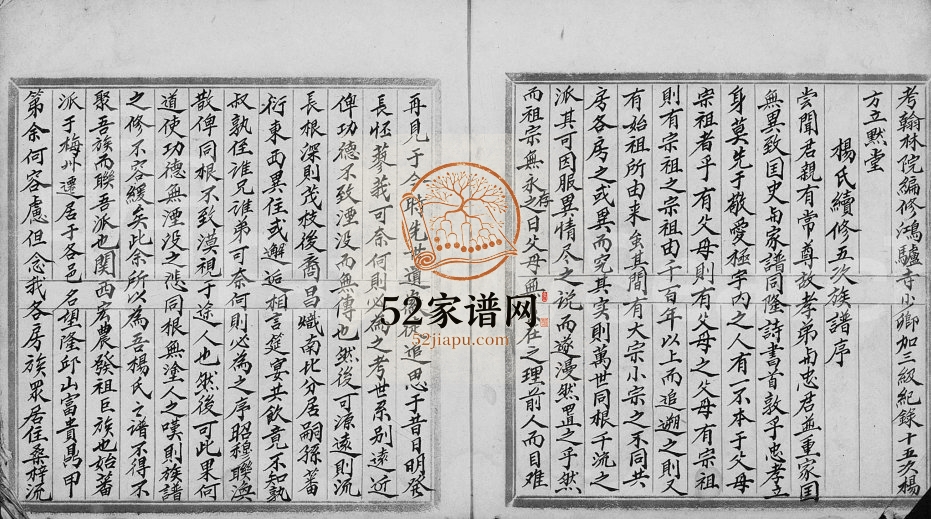 考翰林院編修鴻驢寺少卿加三級紀錄十五次楊
方立黙堂
楊氏續修五次族譜序
尝聞君親有常尊故孝弟与忠君並重家国
無異致国史与家譜同隆詩書首敦乎忠孝立
身莫先于敬愛極宇内之人有一不本于父母
宗祖者乎有父母則有父母之父母有宗祖
則有宗祖之宗祖由千百年以上而追遡之則又
有始祖所由来虽其間有大宗小宗之不同共
房各房之或異而究其实則萬世同根千流之
派其可因服異情尽之说而遂漫然置之乎然
而祖宗無永存之日父母無在之理前人而目难
再見于今時先共遺追思于昔日明發
長怪蓼莪可奈何則必為之考世系别遠近
俾功德不致湮没而無傳也然後可源遠則流
長根深則茂枝後裔昌熾南北分居嗣孫蕃
衍東西異住或邂逅相言筵宴共飲竟不知孰
叔孰侄谁兄谁弟可奈何則必為之序昭穆聯渙
散俾同根不致漠視于途人也然後可此果何
道使功德無湮没之悲同根無塗人之嘆則族譜
之修不容緩矣此余所以為吾楊氏之谱不得不
聚吾族而聯吾派也関西宏農發祖巨族也始蕃
派于梅州遷居于各邑名望隆邱山富貴萬甲
第余何容慮但念我各房族眾居住桑梓流
52家谱网
52jiapu.com